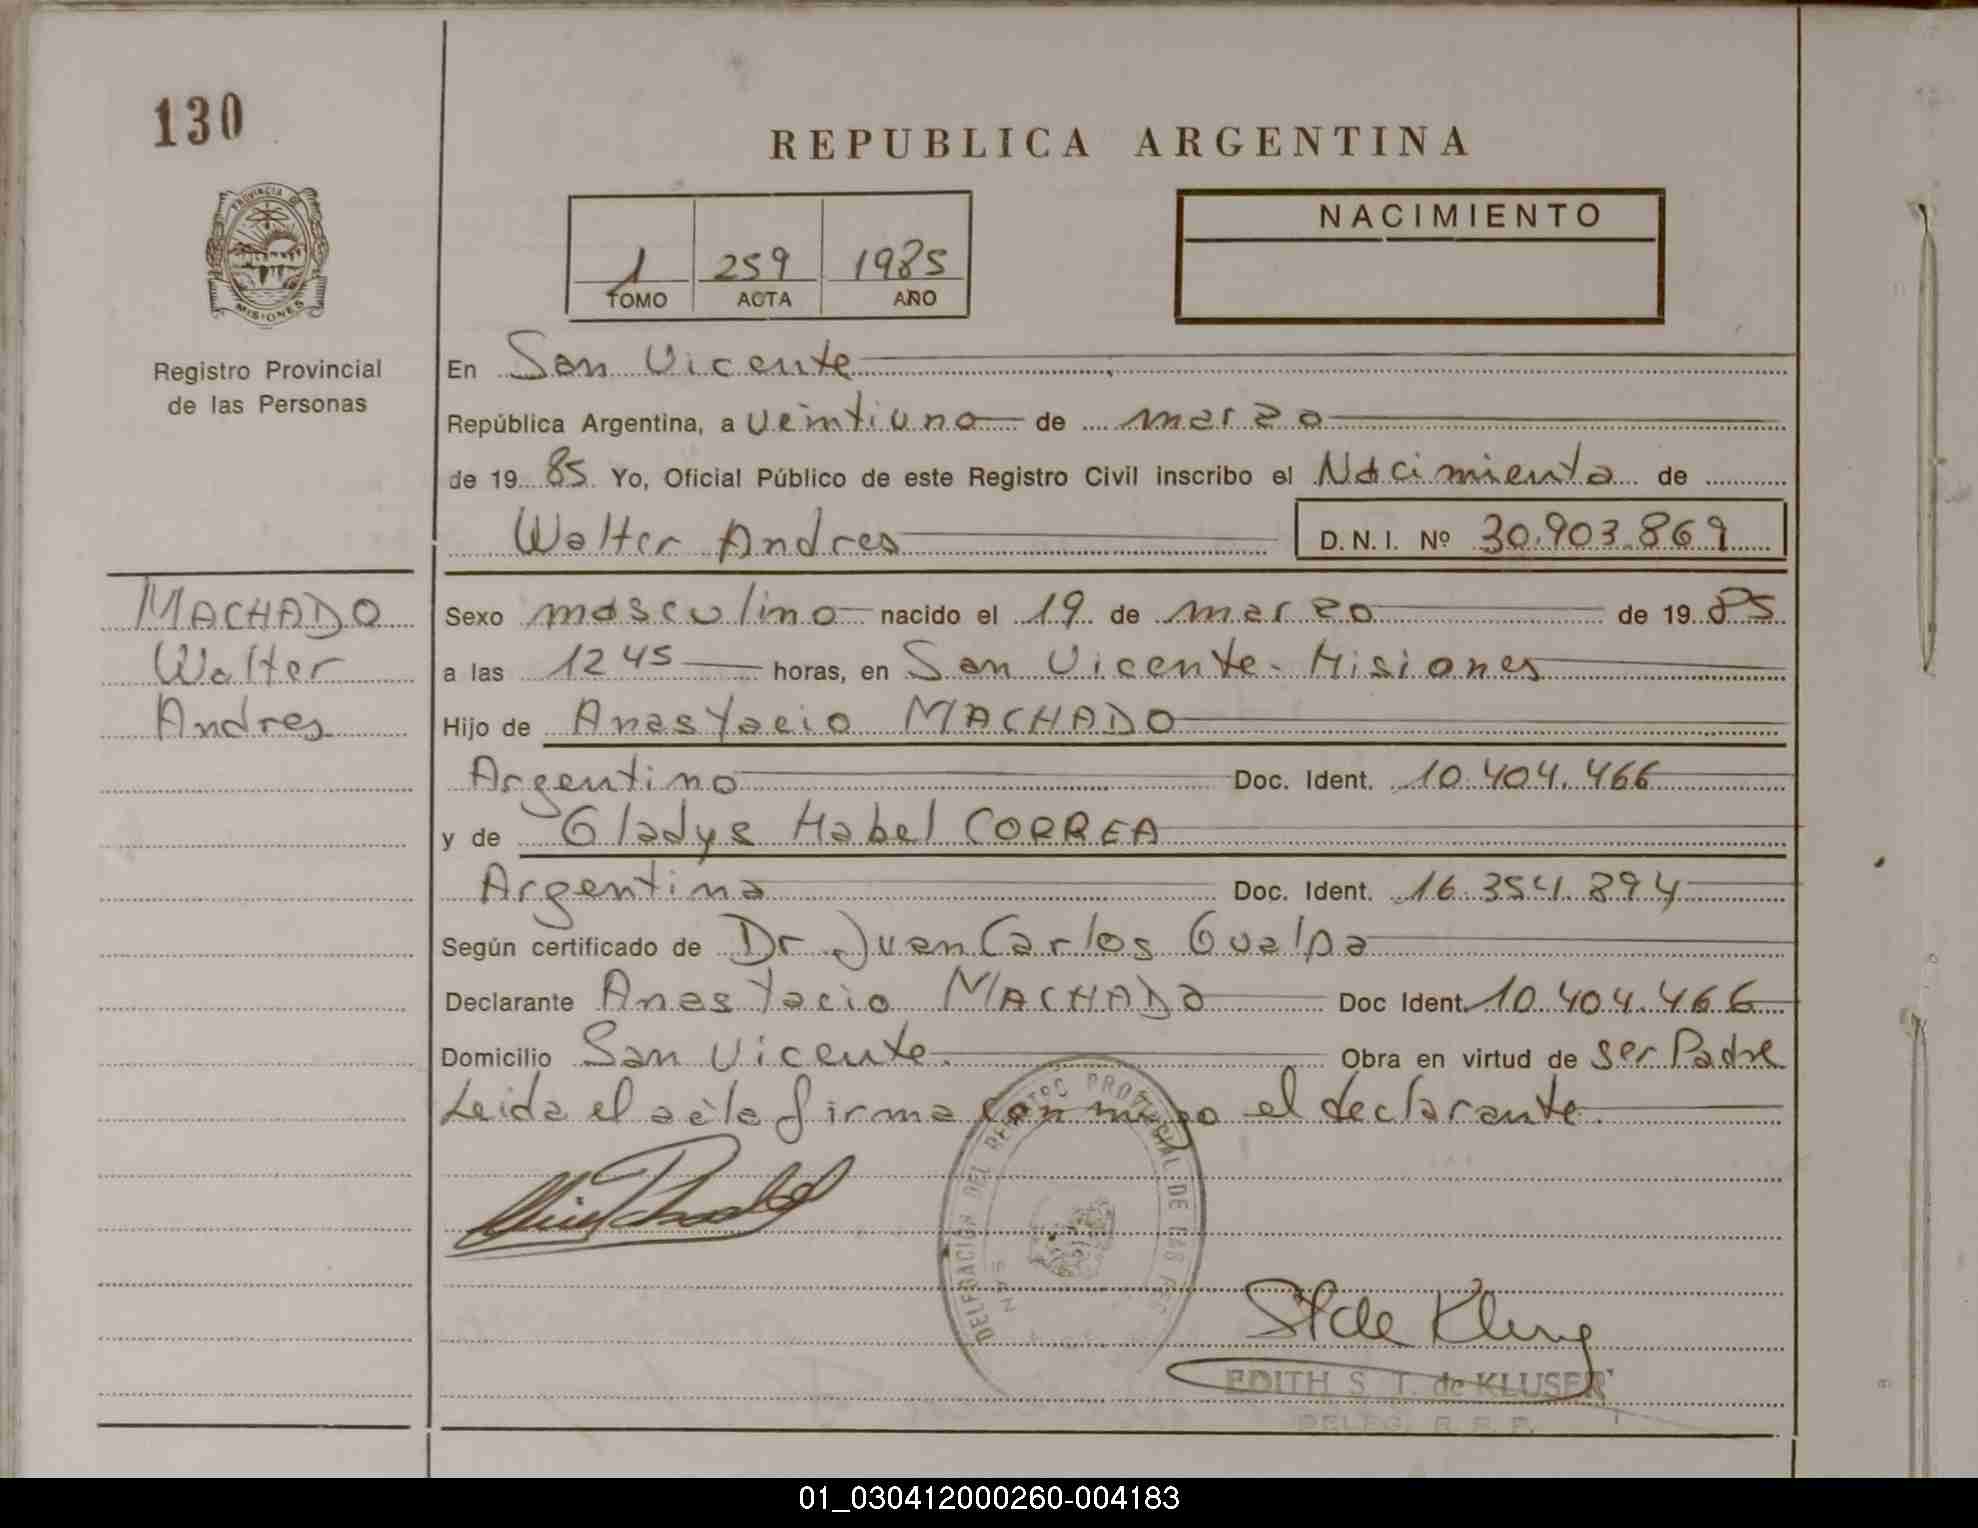 130
REPUBLICA ARGENTINA
PROVINCIA DE
MISIONES
Registro Provincial
de las Personas
1 259 1985
TOMO ACTA AÑO
NACIMIENTO
En San Vicente
República Argentina, a veintiuno de marzo
de 19 85 Yo, Oficial Público de este Registro Civil inscribo el Nacimiento de
Walter Andres D.N.I. Nº 30.903.869
MACHADO
Walter
Andres
Sexo masculino nacido el 19 de marzo de 19 85
a las 12 45 horas, en San Vicente - Misiones
Hijo de Anastacio MACHADO
Argentino Doc. Ident. 10.404.466
y de Gladys Mabel CORREA
Argentina Doc. Ident. 16.354.894
Según certificado de Dr. Juan Carlos Gualpa
Declarante Anastacio MACHADO Doc Ident. 10.404.466
Domicilio San Vicente. Obra en virtud de ser Padre
Leida el acta firma con migo el declarante.
DELEGACION DEL REGISTRO PROVINCIAL DE LAS
EDITH S. T. de KLUSER
DELEG. R. P. P.
01_030412000260-004183